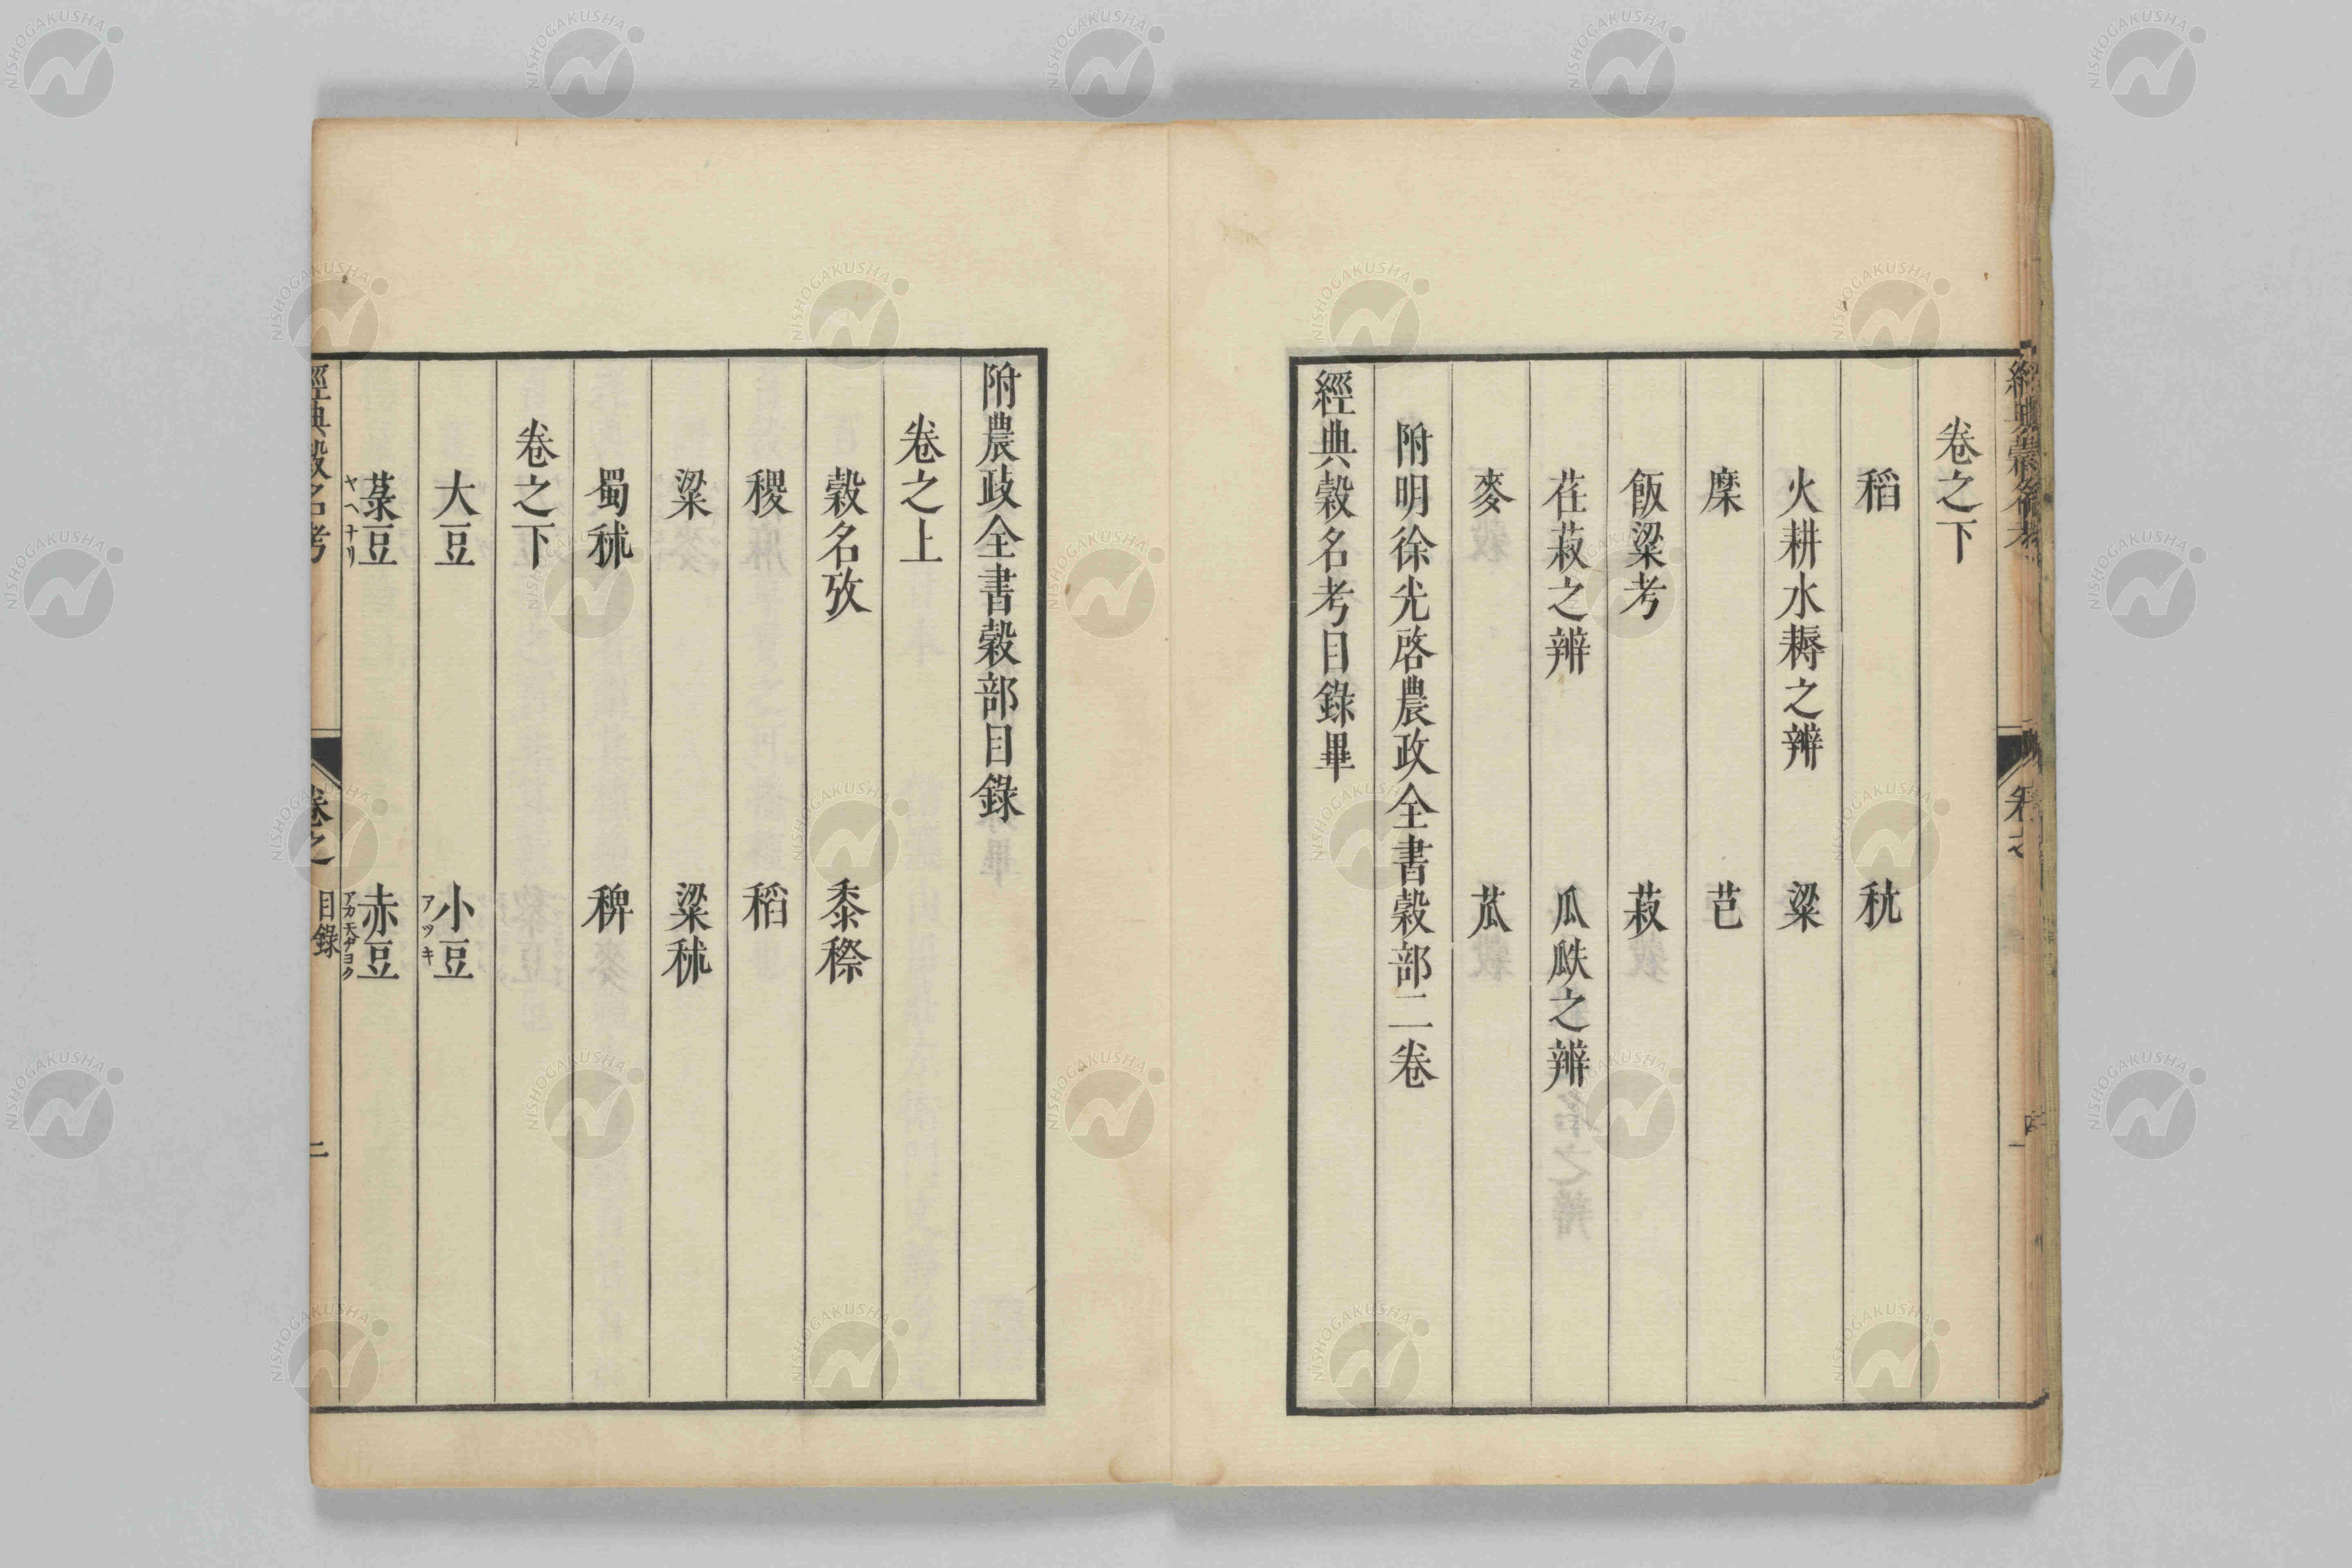 卷之下
稻 秔
火耕水耨之辨 粱
穈 芑
飯粱考 菽
荏菽之辨 瓜瓞之辨
麥 苽
附明徐光啓農政全書穀部二卷
經典穀名考目錄畢
附農政全書穀部目錄
卷之上
穀名攷 黍穄
稷 稻
粱 粱秫
蜀秫 稗
卷之下
大豆 小豆アツキ
菉豆ヤヘナリ 赤豆
經典穀名考 卷之 目錄 二
NISHOGAKUSHA